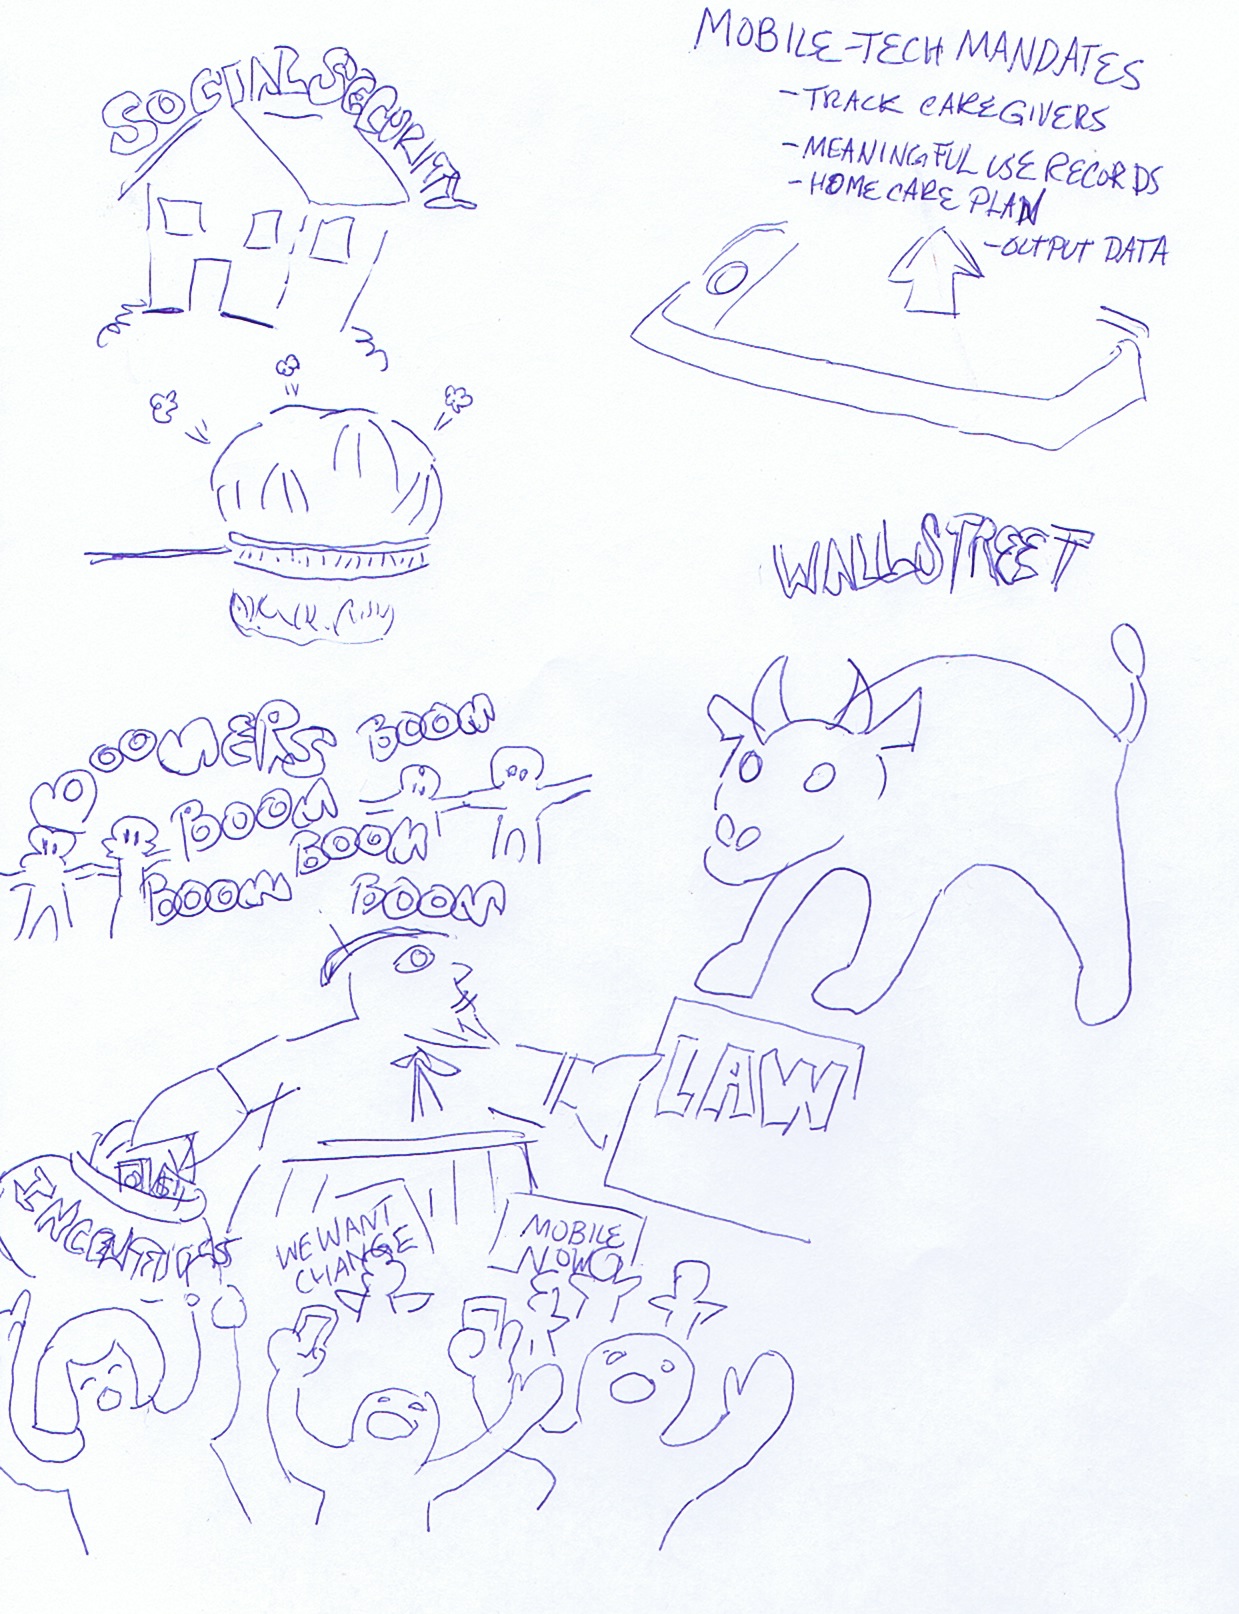 SOCIAL SECURITY
MOBILE-TECH MANDATES
- TRACK CAREGIVERS
- MEANINGFUL USE RECORDS
- HOME CARE PLAN
- OUTPUT DATA
WALLSTREET
BOOMERS BOOM
BOOM
BOOM
BOOM BOOM
LAW
INCENTIVES
WE WANT
CHANGE
MOBILE
NOW